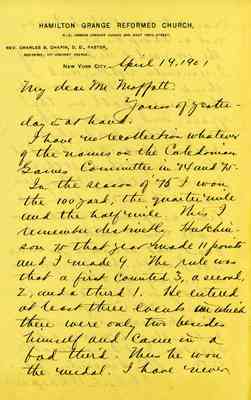 HAMILTON GRANGE REFORMED CHURCH,
REV. CHARLES B. CHAPIN, D. D., PASTOR,
NEW YORK CITY, April 19, 1901
My dear Mr. Moffatt:
Yours of yester-
day is at hand.
I have no recollection whatever
of the names on the Caledonian
Games Committee in '74 and '75.
In the season of '75 I won
the 100 yard, the quarter mile
and the half mile. This I
remember distinctly. Hutchin-
son '75 that year made 11 points
and I made 9. The rule was
that a first counted 3, a second,
2, and a third 1. He entered
at least three events in which
there were only two besides
himself and came in a
bad third. Thus he won
the medal. I have never